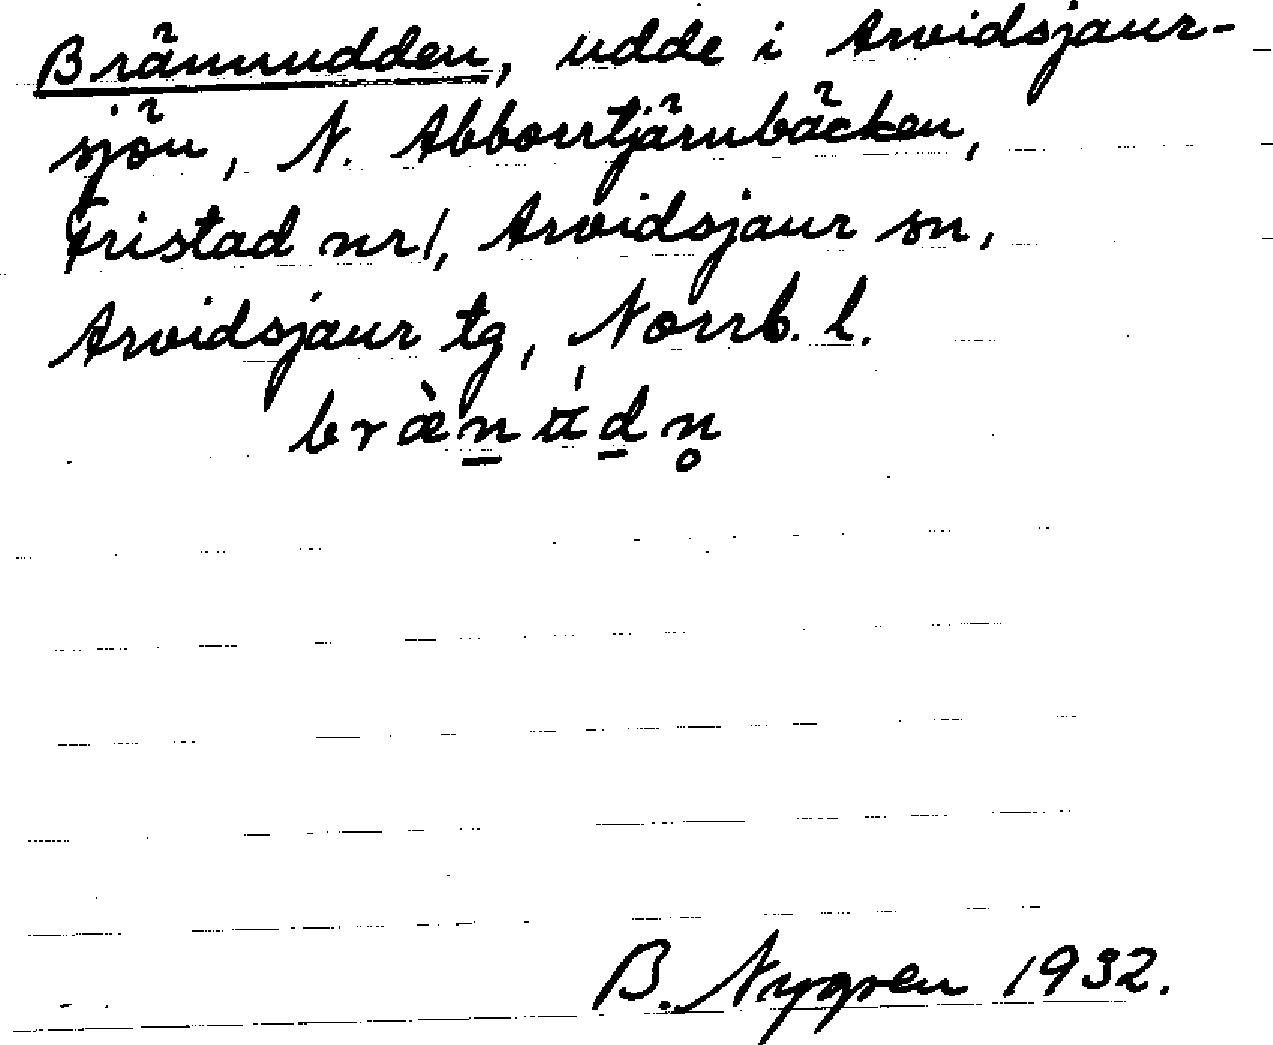 Brännudden, udde i Arvidsjaur-
sjön, N. Abborrtjärnbäcken,
Fristad nr 1, Arvidsjaur sn,
Arvidsjaur tg, Norrb. l.
B. Nygren 1932.